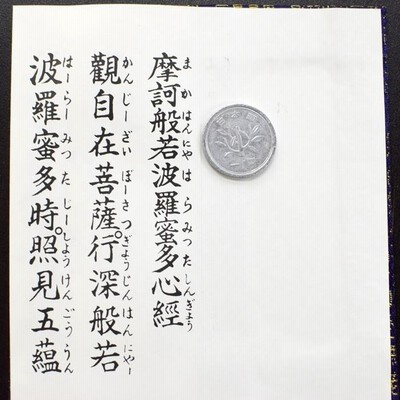 摩訶般若波羅蜜多心經
まかはんにゃはらみったしんぎょう
觀自在菩薩。行深般若
かんじーざいぼーさつぎょうじんはんにゃー
波羅蜜多時。照見五蘊
はーらーみつたじーしょうけんごううん